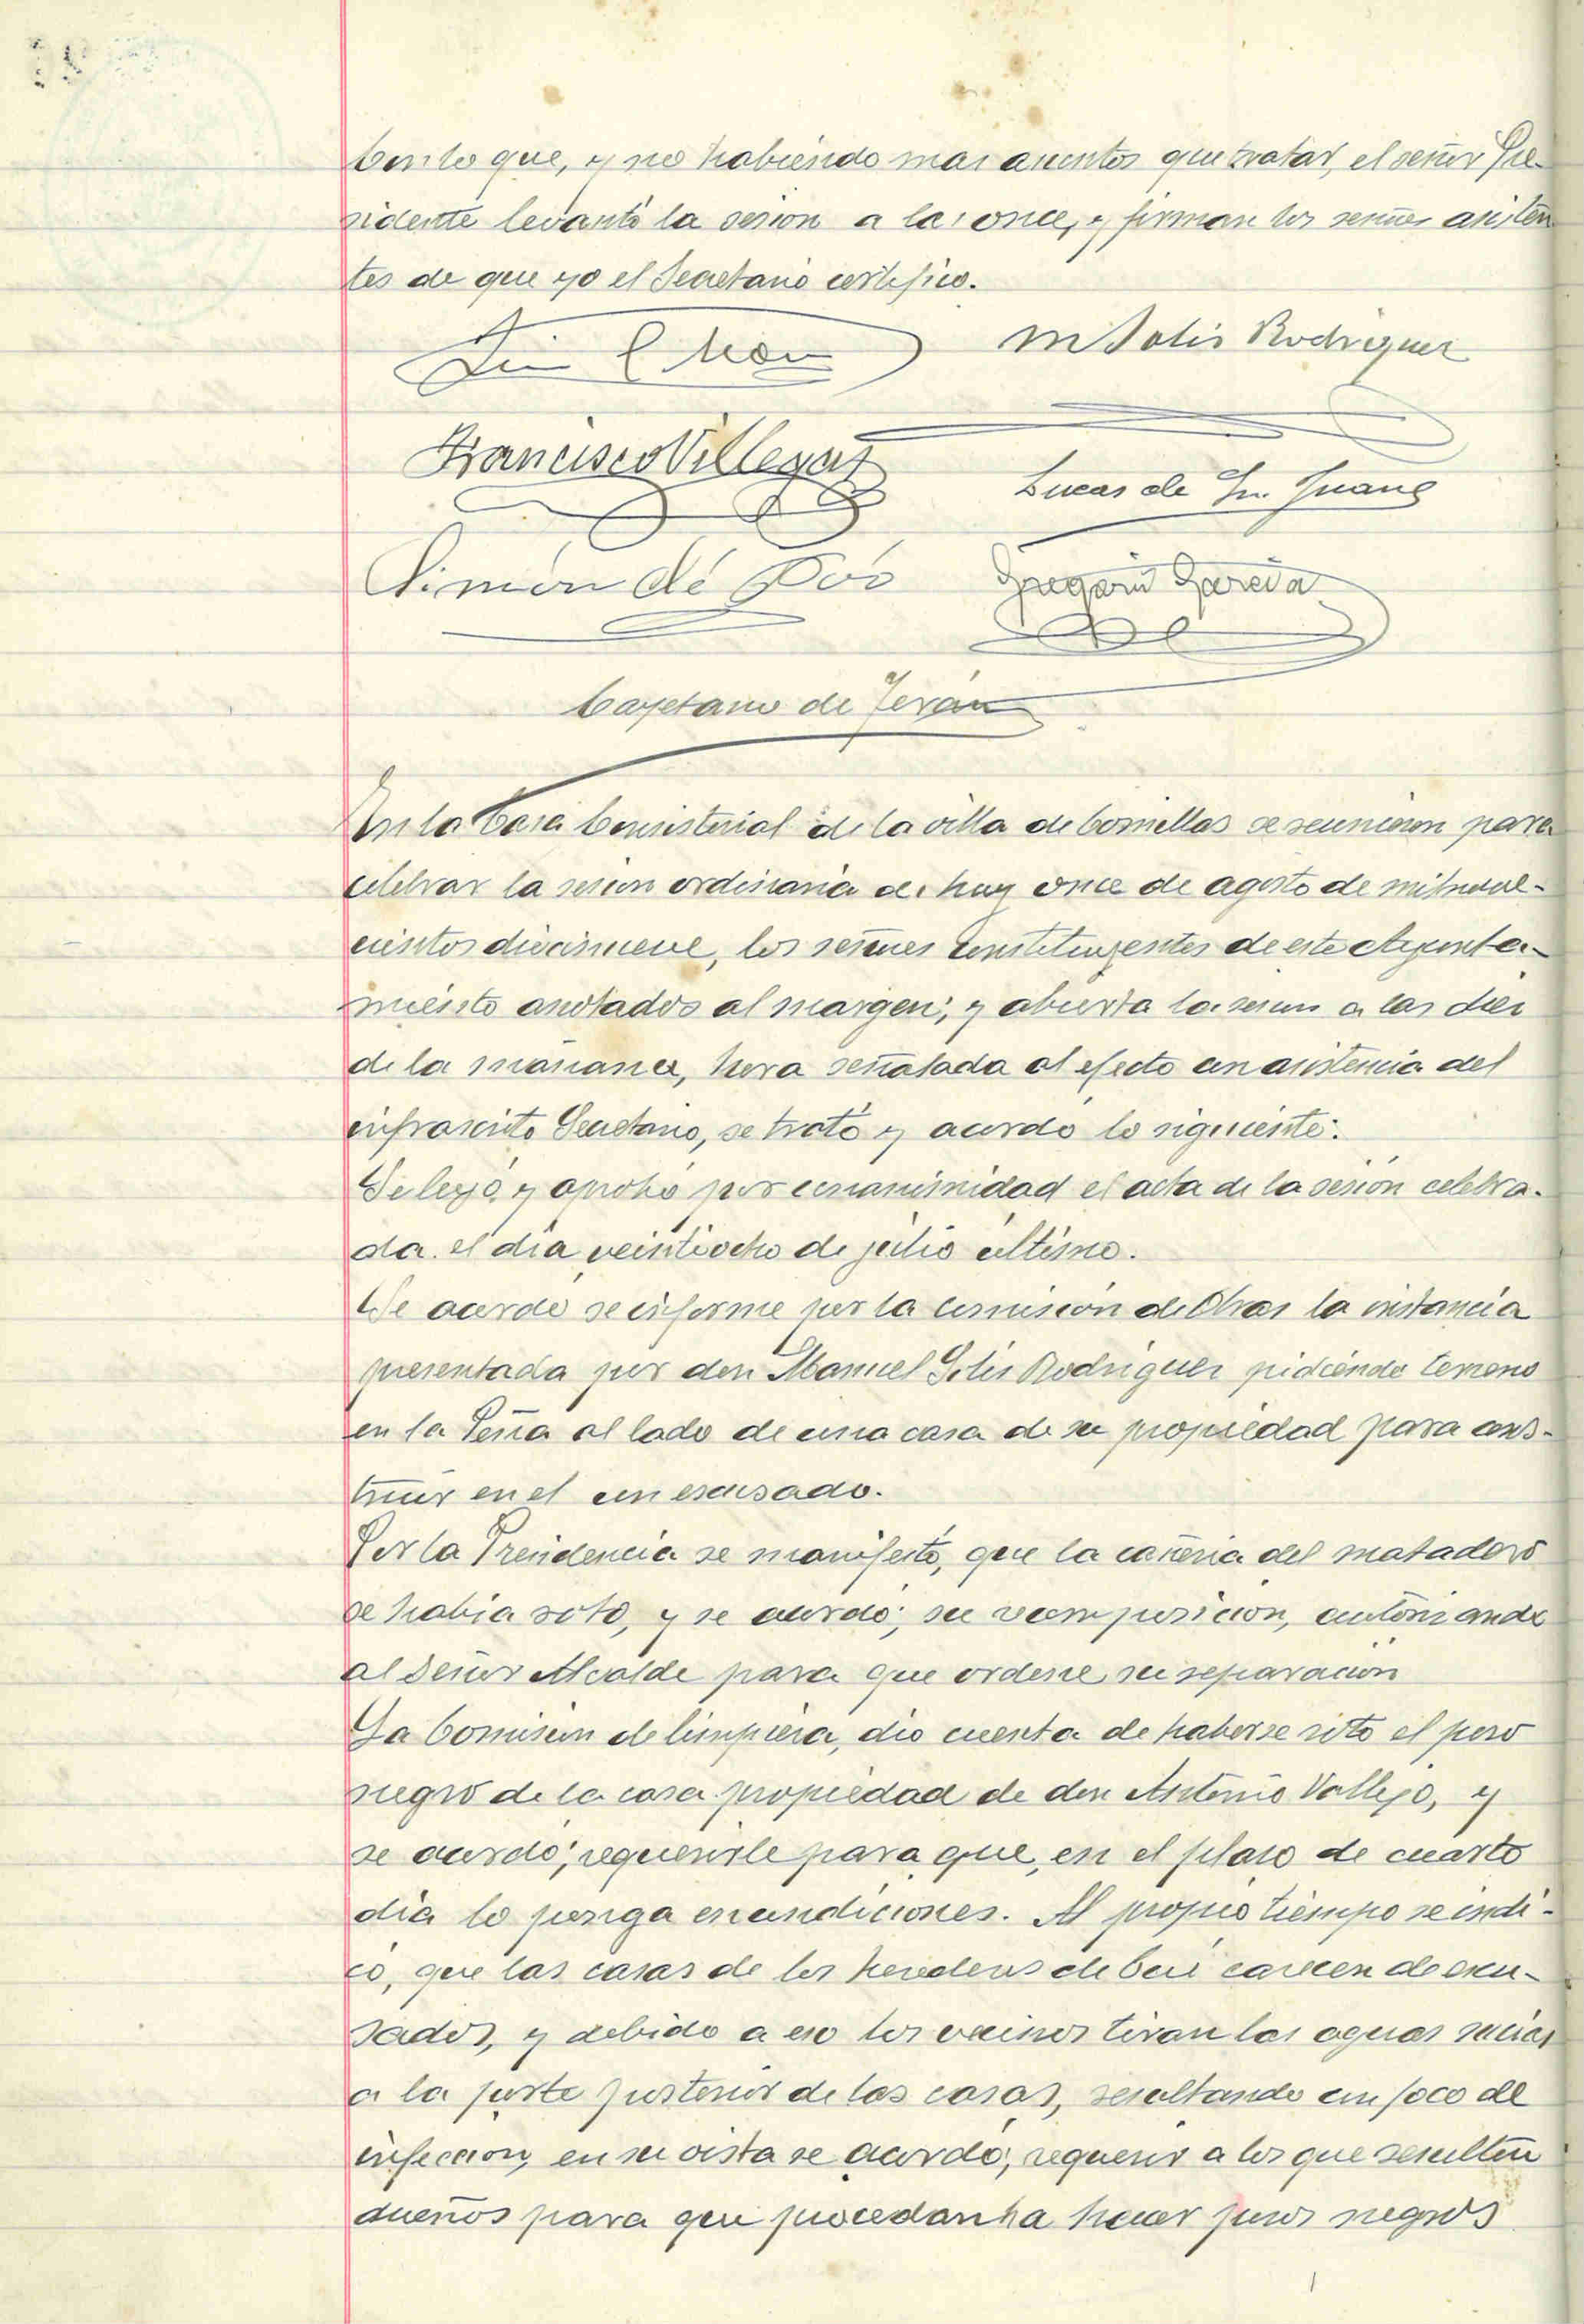 Con lo que, y no habiendo mas asuntos que tratar, el señor Pre-
sidente levantó la sesion a las once, y firman los señores asisten
tes de que yo el Secretario certifico.
M Solis Rodriguez
Francisco Villegas
Lucas de Sn. Juan
Simón de Pós
Gregorio García
Cayetano de Terán
En la Casa Consistorial de la villa de Comillas se reunieron para
celebrar la sesion ordinaria de hoy once de agosto de mil nove-
cientos diecinueve, los señores constituyentes de este Ayunta-
miento anotados al margen; y abierta la sesion a las diez
de la mañana, hora señalada al efecto con asistencia del
infrascrito Secretario, se trató y acordó lo siguiente:
Se leyó y aprobó por unanimidad el acta de la sesión celebra-
da el dia veintiocho de julio último.
Se acordó se informe por la comisión de Obras la instancia
presentada por don Manuel Solis Rodriguez pidiendo terreno
en la Peña al lado de una casa de su propiedad para cons-
truir en el un escusado.
Por la Presidencia se manifestó, que la cañeria del matadero
se habia roto, y se acordó; su recomposicion, autorizando
al Señor Alcalde para que ordene su reparacion
La Comision de limpieza, dio cuenta de haberse roto el pozo
negro de la casa propiedad de don Antonio Vallejo, y
se acordó; requerirle para que, en el plazo de cuarto
dia lo ponga en condiciones. Al propio tiempo se indi-
có, que las casas de los herederos de carecen de escu-
sados, y debido a eso los vecinos tiran las aguas sucias
a la parte posterior de las casas, resultando un foco de
infeccion, en su vista se acordó; requerir a los que resulten
dueños para que procedan ha hacer pozos negros